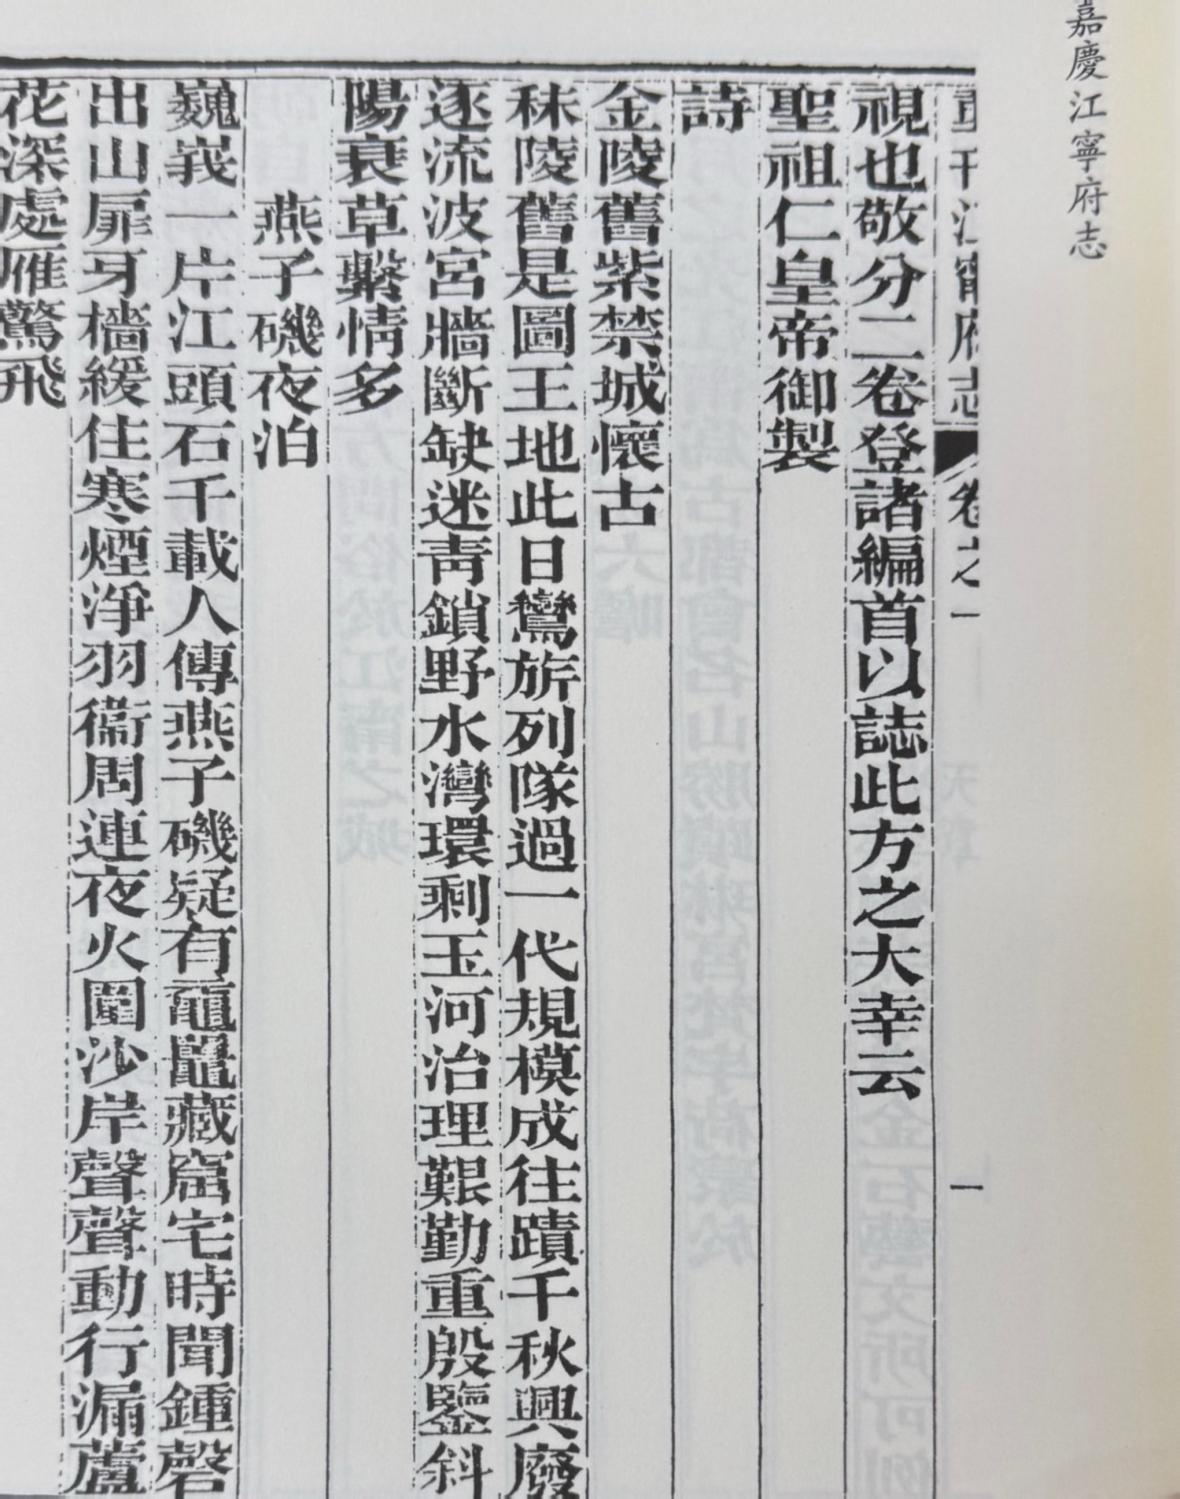 嘉慶江寧府志
重刊江寧府志 卷之一 一
視也敬分二卷登諸編首以誌此方之大幸云
聖祖仁皇帝御製
詩
金陵舊紫禁城懷古
秣陵舊是圖王地此日鸞旂列隊過一代規模成往蹟千秋興廢
逐流波宮牆斷缺迷青鎖野水灣環剩玉河治理艱勤重殷鑒斜
陽衰草繫情多
燕子磯夜泊
巍峩一片江頭石千載人傳燕子磯疑有黿鼉藏窟宅時聞鍾磬
出山扉牙檣緩住寒煙淨羽衞周連夜火圍沙岸聲聲動行漏蘆
花深處雁驚飛